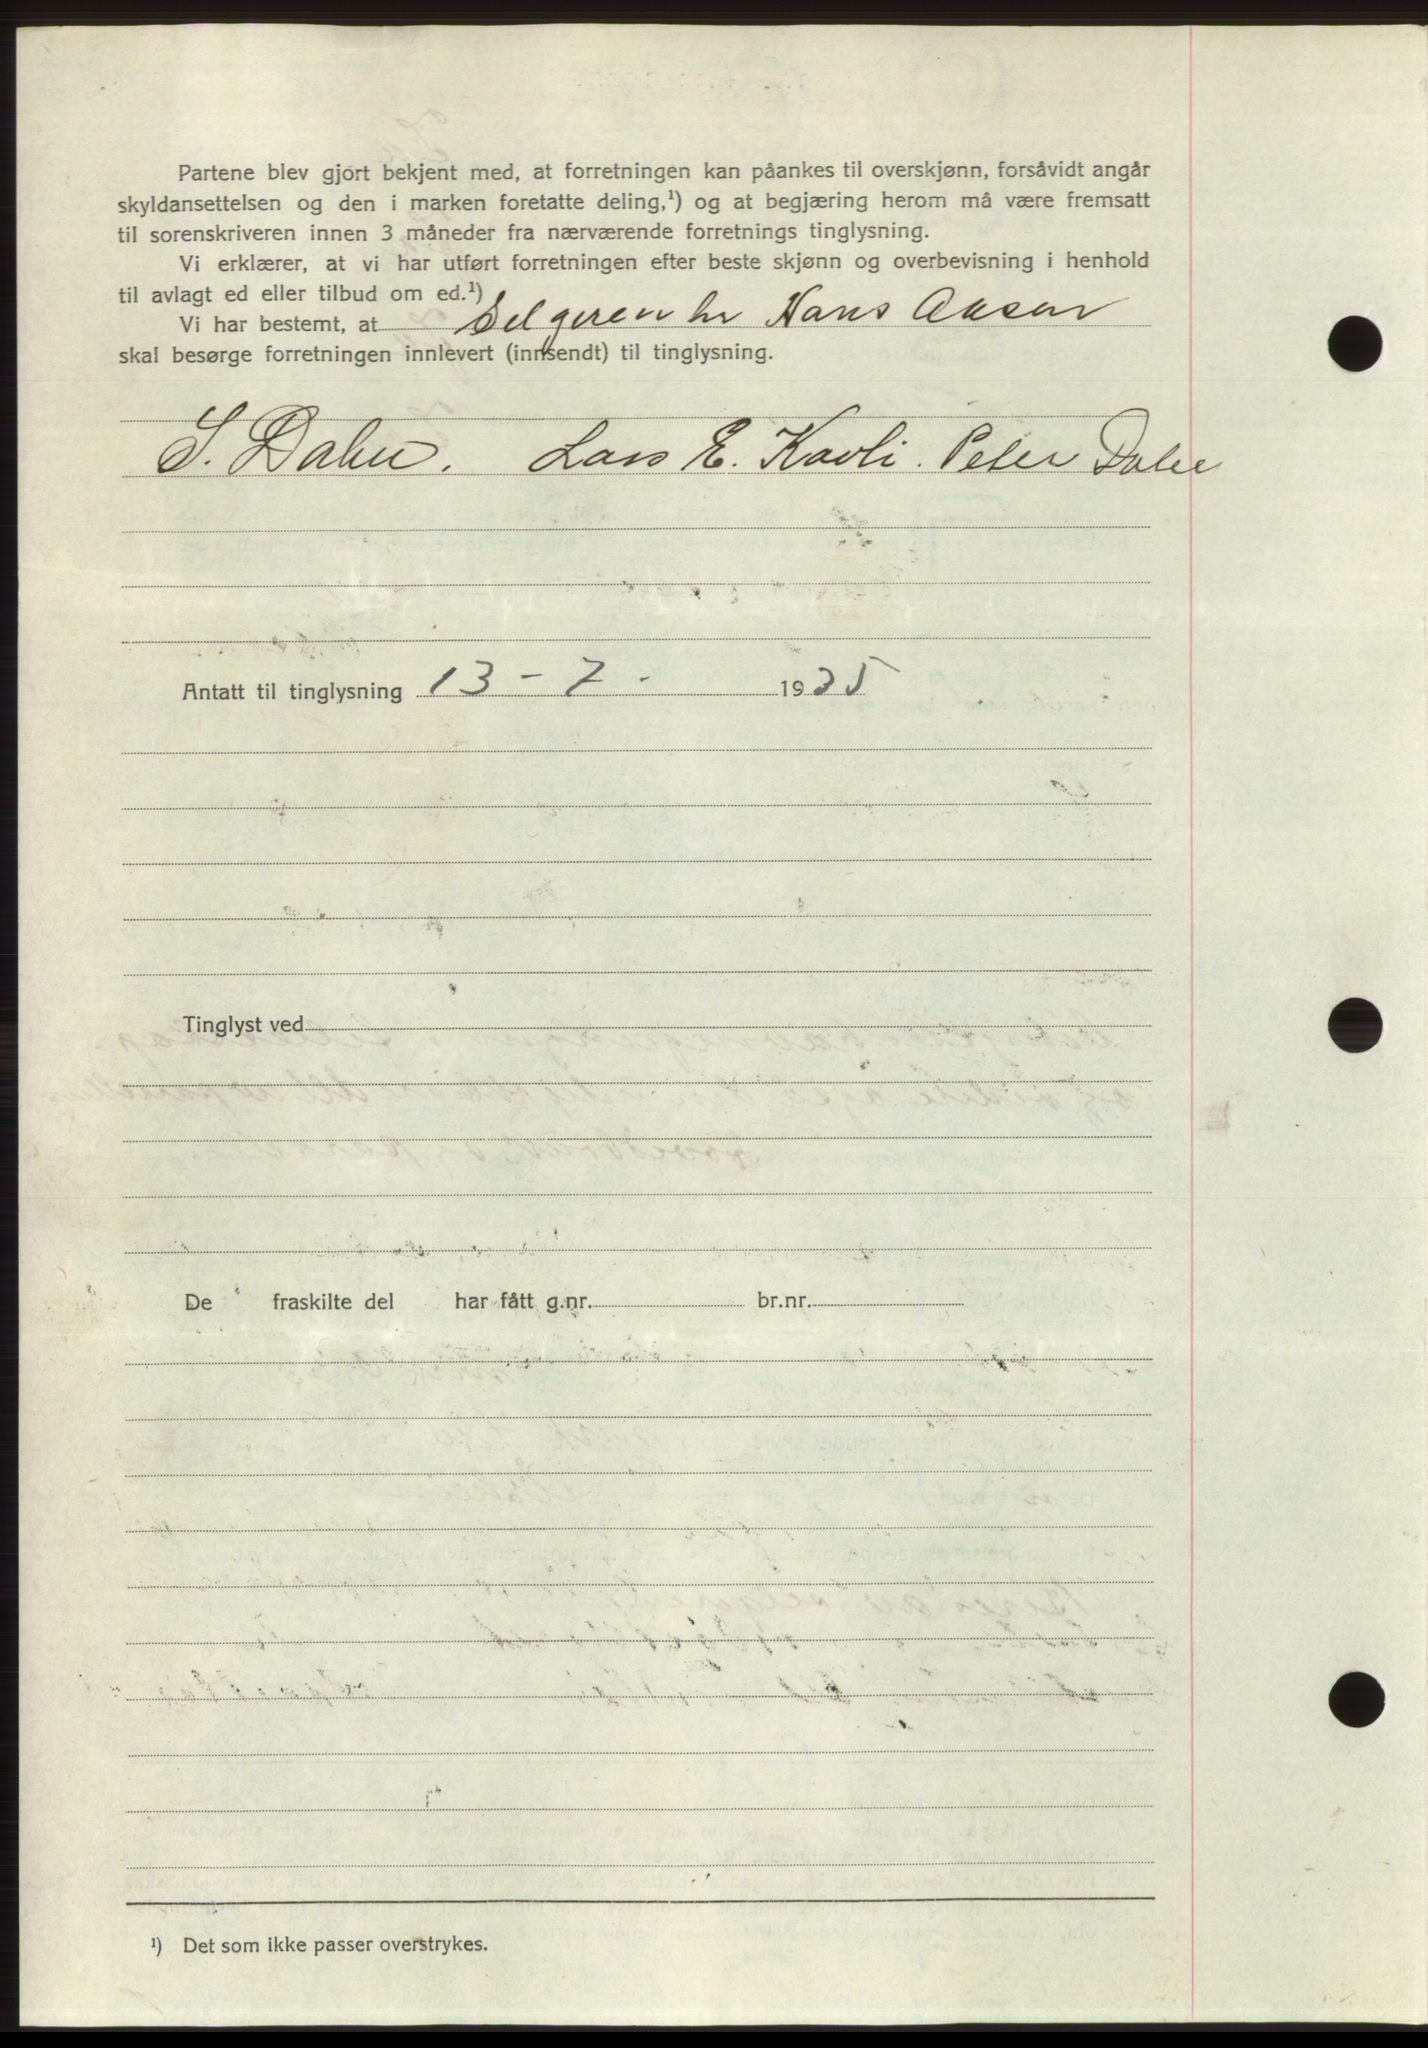 Partene blev gjort bekjent med, at forretningen kan påankes til overskjønn, forsåvidt angår
skyldansettelsen og den i marken foretatte deling,¹) og at begjæring herom må være fremsatt
til sorenskriveren innen 3 måneder fra nærværende forretnings tinglysning.
Vi erklærer, at vi har utført forretningen efter beste skjønn og overbevisning i henhold
til avlagt ed eller tilbud om ed.¹)
Vi har bestemt, at Selgeren hr Hans
skal besørge forretningen innlevert (innsendt) til tinglysning.
S. Dahle. Lars E. Kavli. Peter Dale
Antatt til tinglysning 13 - 7 - 1935
Tinglyst ved
De fraskilte del har fått g.nr. br.nr.
¹) Det som ikke passer overstrykes.